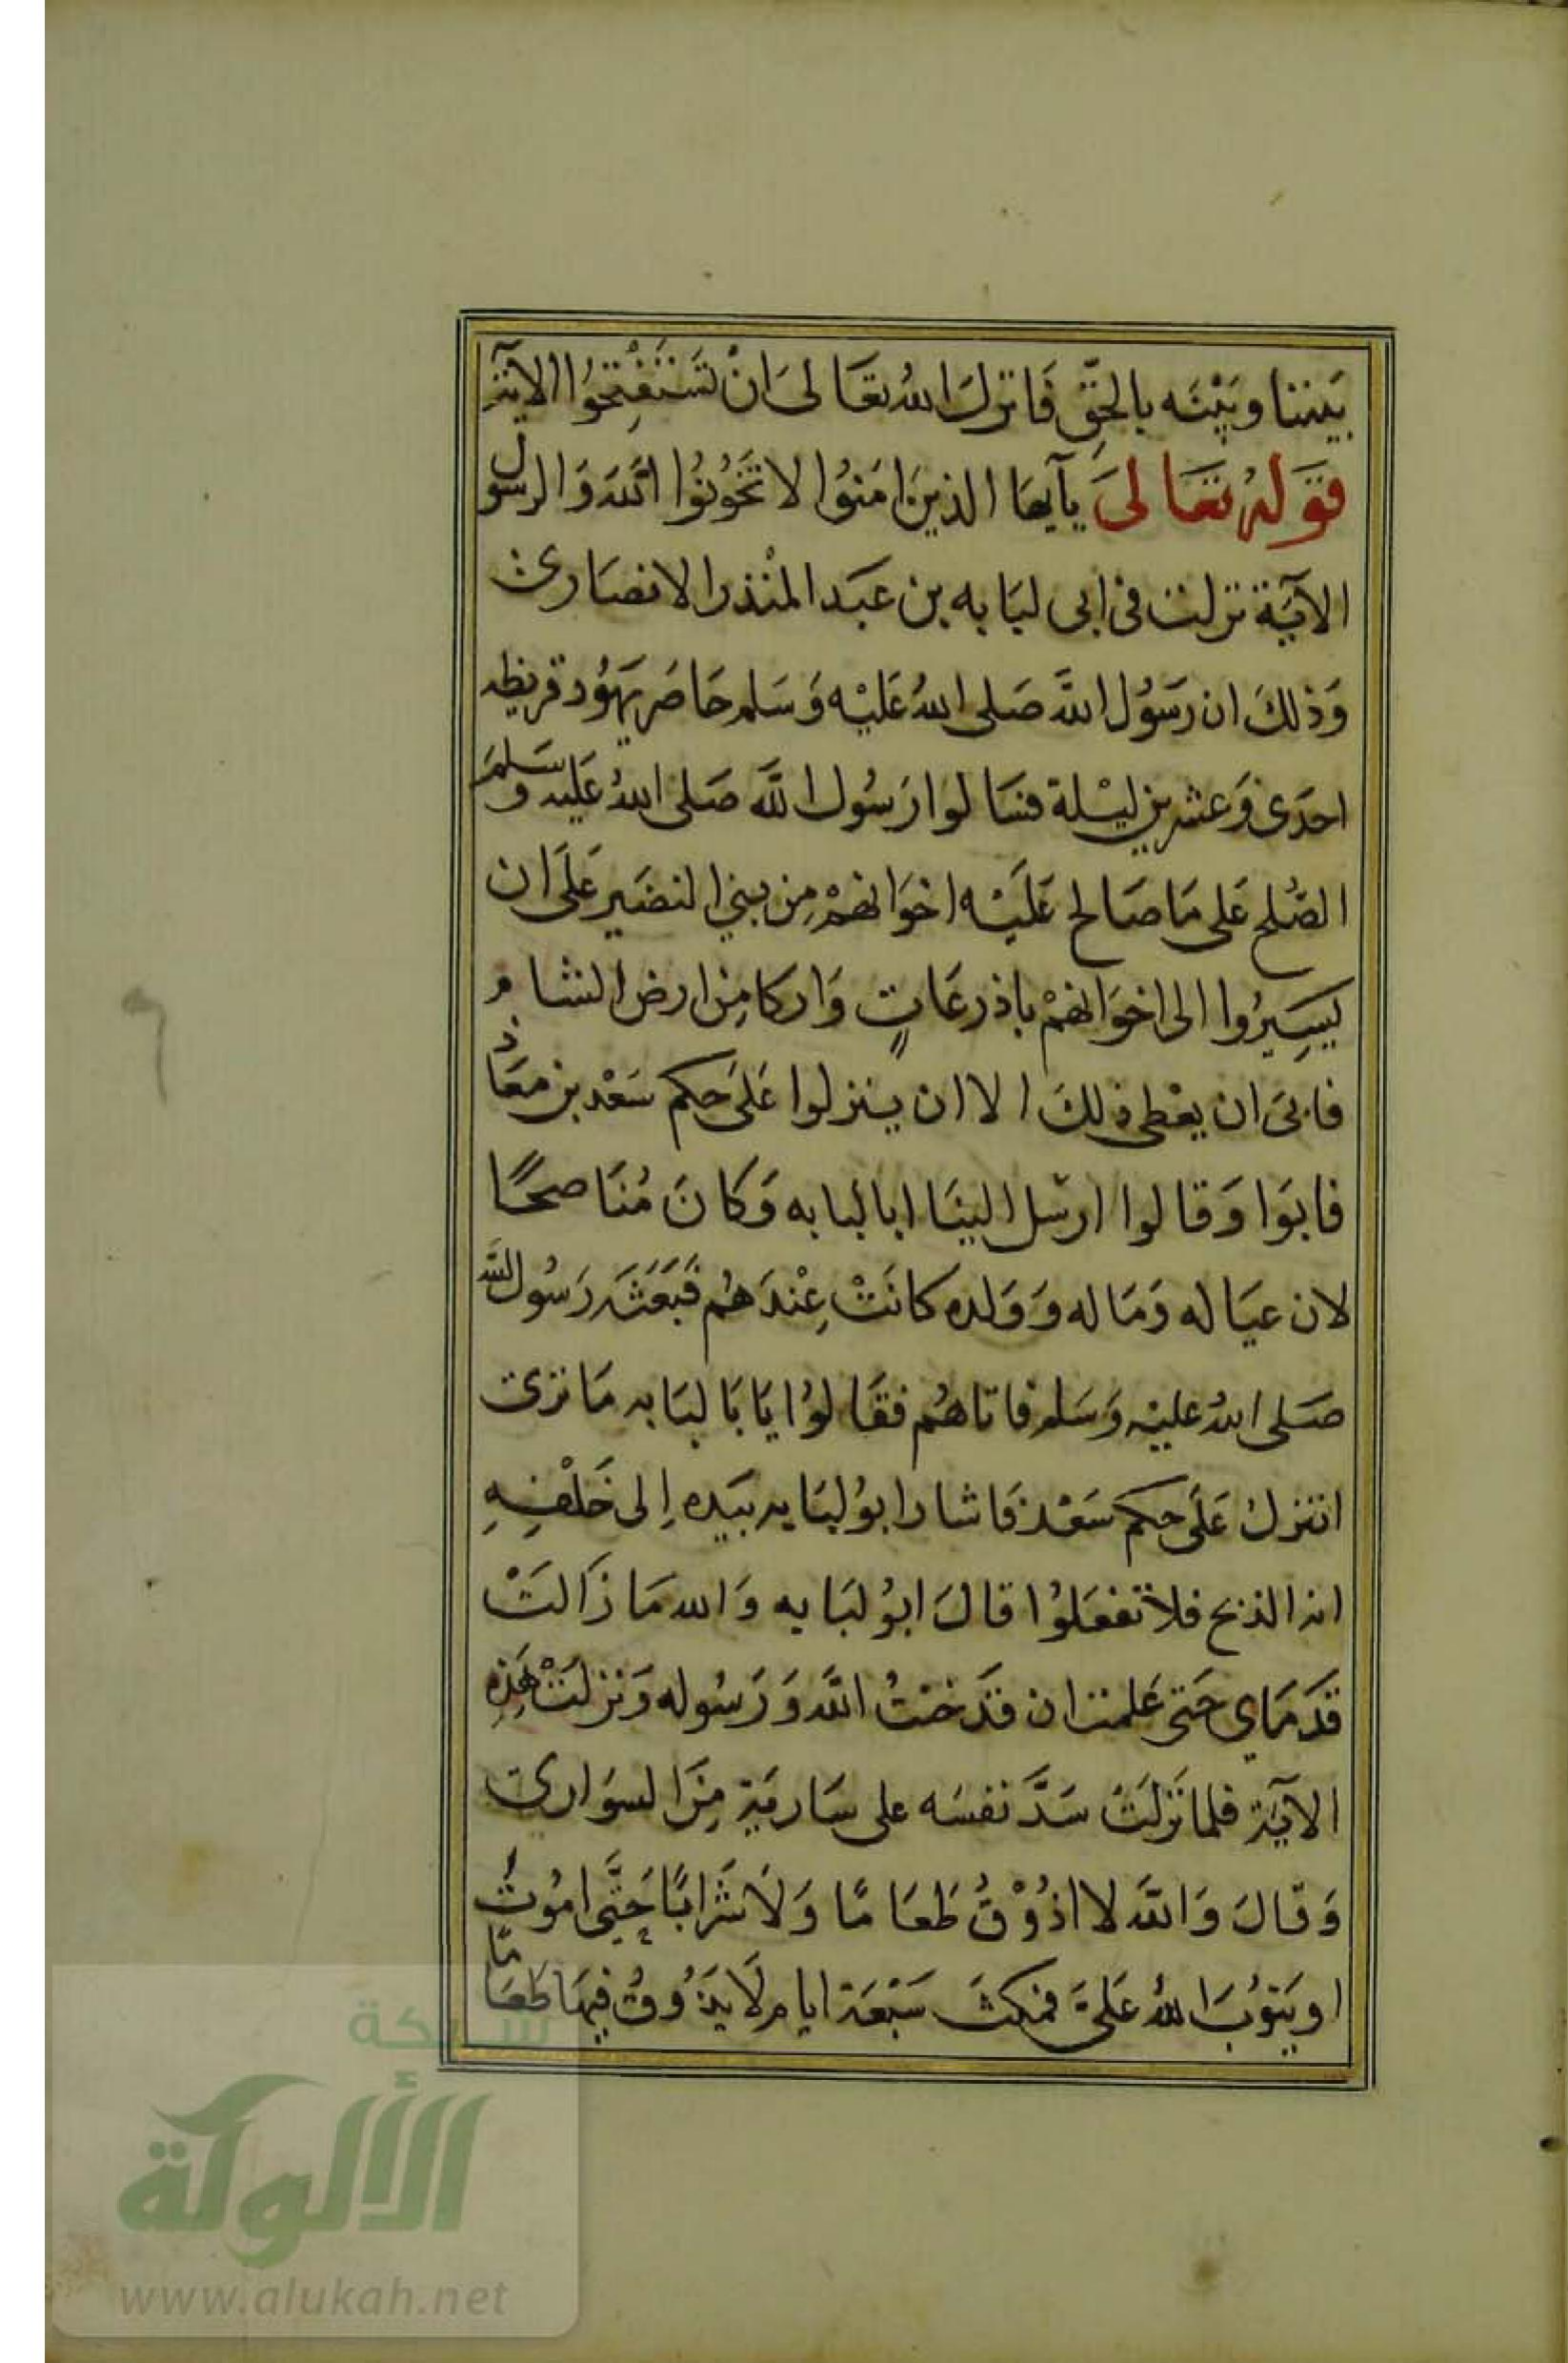 بَيننا وبَيْنَه بالحَقِّ فَانزلَ اللهُ تعَالىَ انْ تَسْتَفْتِحُوا الاية
قوَلهُ تعَالىَ يآيها الذينَ امَنوُا لا تخَوُنوُا اللّهَ وَالرسُول
الآيَة نزلت فى ابى لبَابه بن عَبَد المنْذر الانصَارى
وَذلكَ ان رَسُول اللَّه صَلى اللهُ عَليْه وَسَلم حَاصَر يَهوُد قريظه
احدَى وَعشرين ليْلة فسَالوا رَسُول اللَّه صَلى اللهُ عَليه وسَلمَ
الصُّلح عَلى مَا صَالح عَليَْه اخوَانهمْ مِن بني النضَير عَلىَ ان
يَسِيرُوا الى اخوَانهمْ باذرعَاتٍ وَاركا مِن ارض الشام
فابىَ ان يعْطى ذلكَ الا ان ينزلوا عَلىَ حكم سَعْد بن معَاذ
فابَوا وَقالوا ارسْل الينَا ابا لبابه وَكانَ مُنَاصحًا
لان عيَاله وَمَاله وَوَلده كانَتْ عِنْدَهُم فبَعَثَه رَسُول الله
صَلى اللهُ عليْه وَسَلم فاتاهُم فقَالوُا يَا بَا لبَابه مَا ترَى
اننزلُ عَلىَ حكم سَعْد فَاشار ابوُ لبَابه بيَده اِلى خَلْفِهِ
انه الذبح فلا تفعَلوُا قالَ ابوُ لبَابه وَالله مَا زَالتْ
قَدَمَاي حَتى عَلمت ان قَد خنتُ اللَّه وَرَسُوله وَنزلتْ هَذِهِ
الآيَة فلما نَزلَتْ سَدَّ نفسَه على سَاريَة مِنَ السوَارى
وَقالَ وَاللَّه لا اذُوْقُ طَعَامًا وَلَا شَرابًا حَتَّى امُوتُ
او يَتوُبَ اللهُ عَلىَّ فمكثَ سَبْعَة ايام لَا يَذُوقُ فيهَا طَعَامًا
شبكة
الألوكة
www.alukah.net